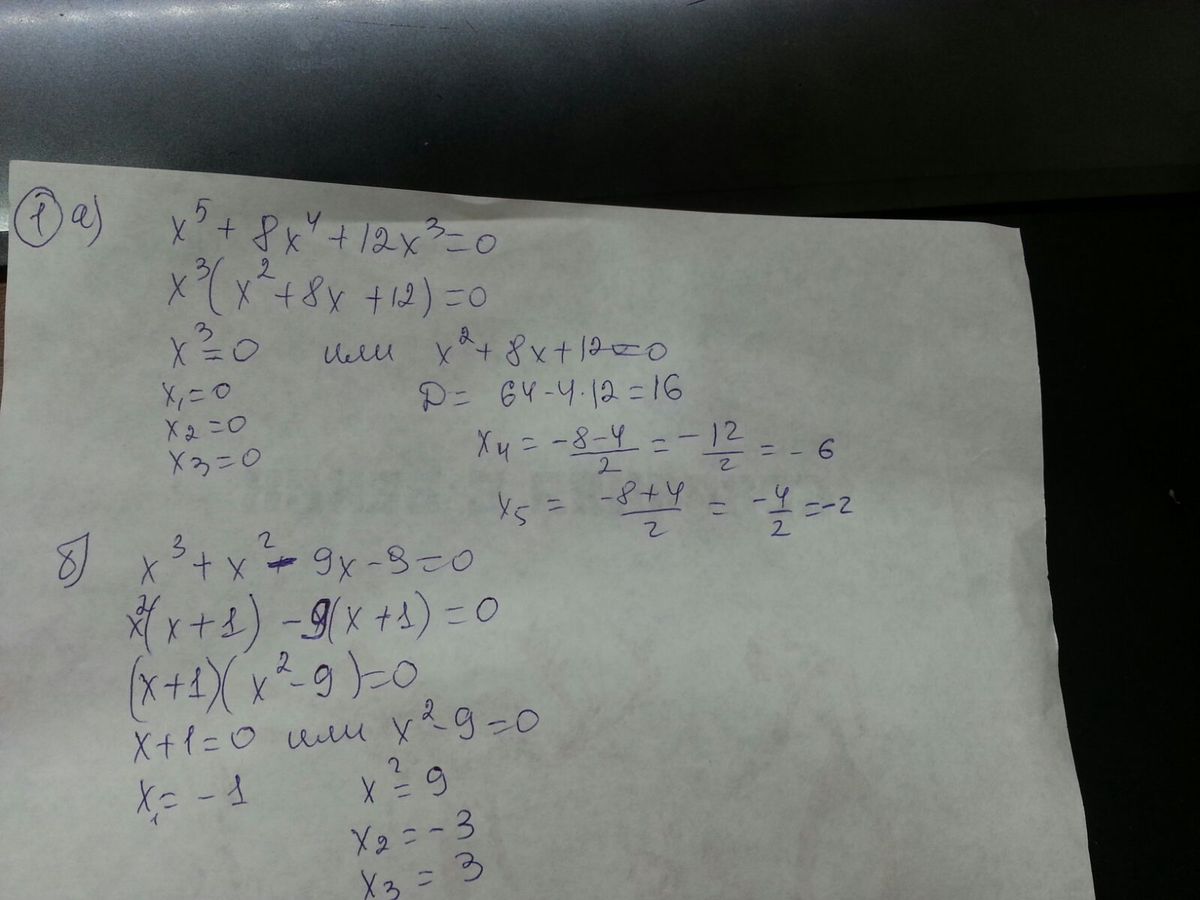 1 а) x⁵ + 8x⁴ + 12x³ = 0
x³(x² + 8x + 12) = 0
x³ = 0 или x² + 8x + 12 = 0
x₁ = 0 D = 64 - 4·12 = 16
x₂ = 0 x₄ = (-8-4)/2 = -12/2 = -6
x₃ = 0
x₅ = (-8+4)/2 = -4/2 = -2
б) x³ + x² - 9x - 9 = 0
x²(x + 1) - 9(x + 1) = 0
(x+1)(x² - 9) = 0
x + 1 = 0 или x² - 9 = 0
x₁ = -1 x² = 9
x₂ = -3
x₃ = 3